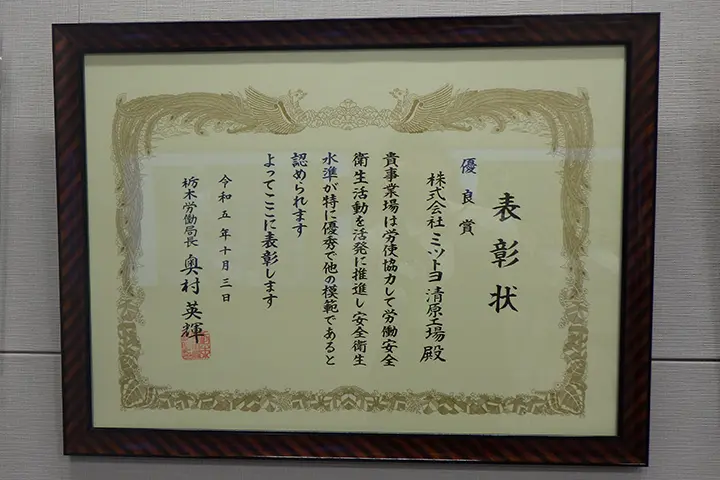 表彰状
優良賞
株式会社ミツトヨ清原工場殿
貴事業場は労使協力して労働安全
衛生活動を活発に推進し安全衛生
水準が特に優秀で他の模範であると
認められます
よってここに表彰します
令和五年十月三日
栃木労働局長 奥村英輝